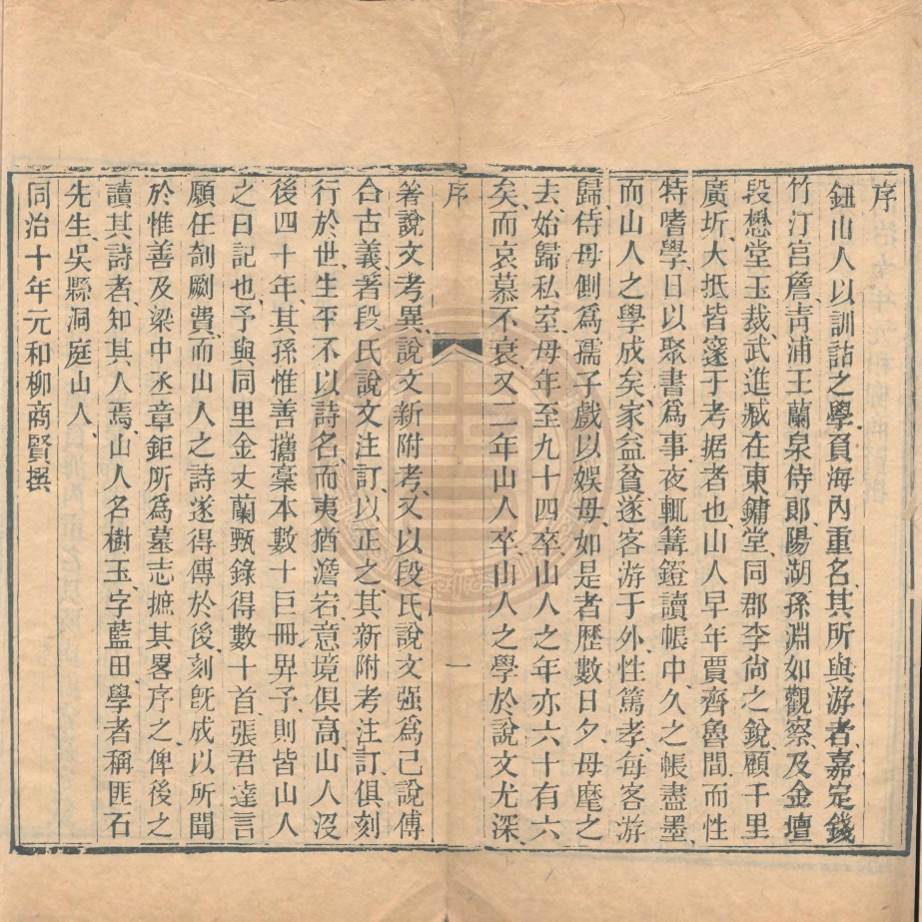 序
鈕山人以訓詁之學負海內重名其所與游者嘉定錢
竹汀宮詹靑浦王蘭泉侍郞陽湖孫淵如觀察及金壇
段懋堂玉裁武進臧在東鏞堂同郡李尙之銳顧千里
廣圻大抵皆邃于考据者也山人早年賈齊魯間而性
特嗜學日以聚書爲事夜輒篝鐙讀帳中久之帳盡墨
而山人之學成矣家益貧遂客游于外性篤孝每客游
歸侍母側爲孺子戲以娛母如是者歷數日夕母麾之
去始歸私室母年至九十四卒山人之年亦六十有六
矣而哀慕不衰又二年山人卒山人之學於說文尤深
序
一
著說文考異說文新附考又以段氏說文强爲己說傅
合古義著段氏說文注訂以正之其新附考注訂俱刻
行於世生平不以詩名而夷猶澹宕意境俱高山人沒
後四十年其孫惟善攜稾本數十巨冊畀予則皆山人
之日記也予與同里金丈蘭甄錄得數十首張君達言
願任剞劂費而山人之詩遂得傳於後刻旣成以所聞
於惟善及梁中丞章鉅所爲墓志摭其畧序之俾後之
讀其詩者知其人焉山人名樹玉字藍田學者稱匪石
先生吳縣洞庭山人
同治十年元和柳商賢撰